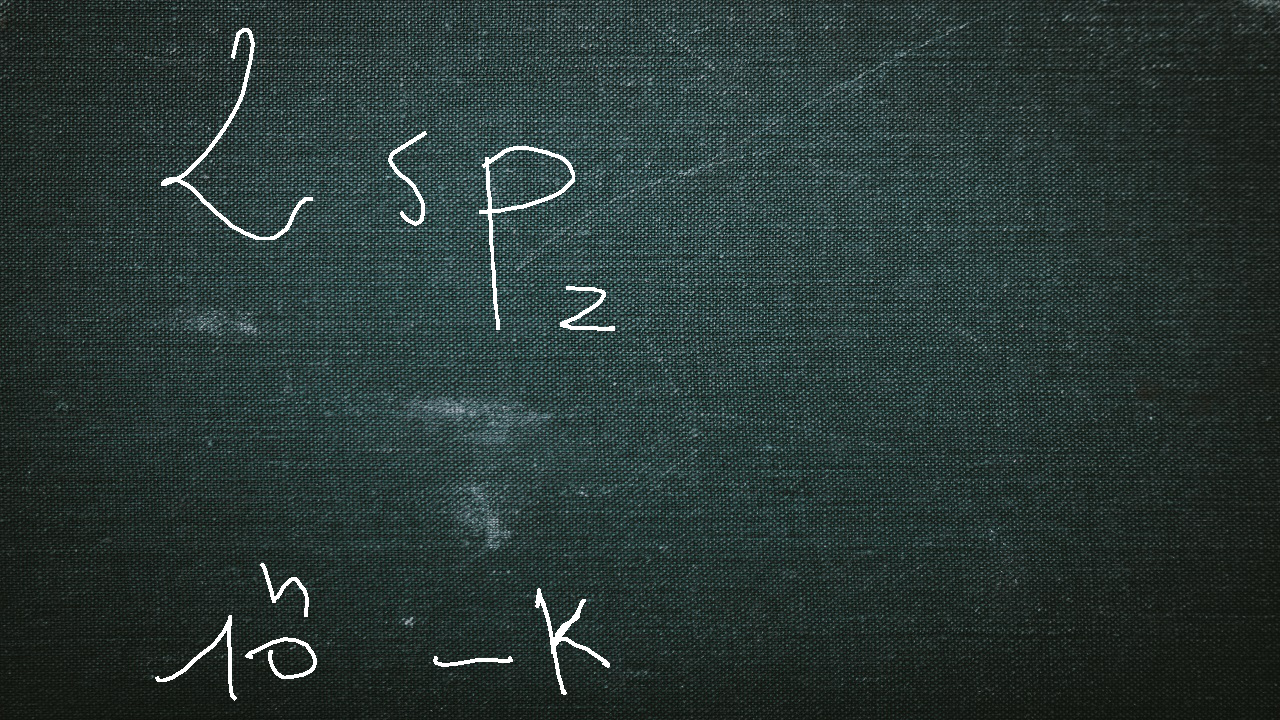 2 sp₂
10ⁿ - k